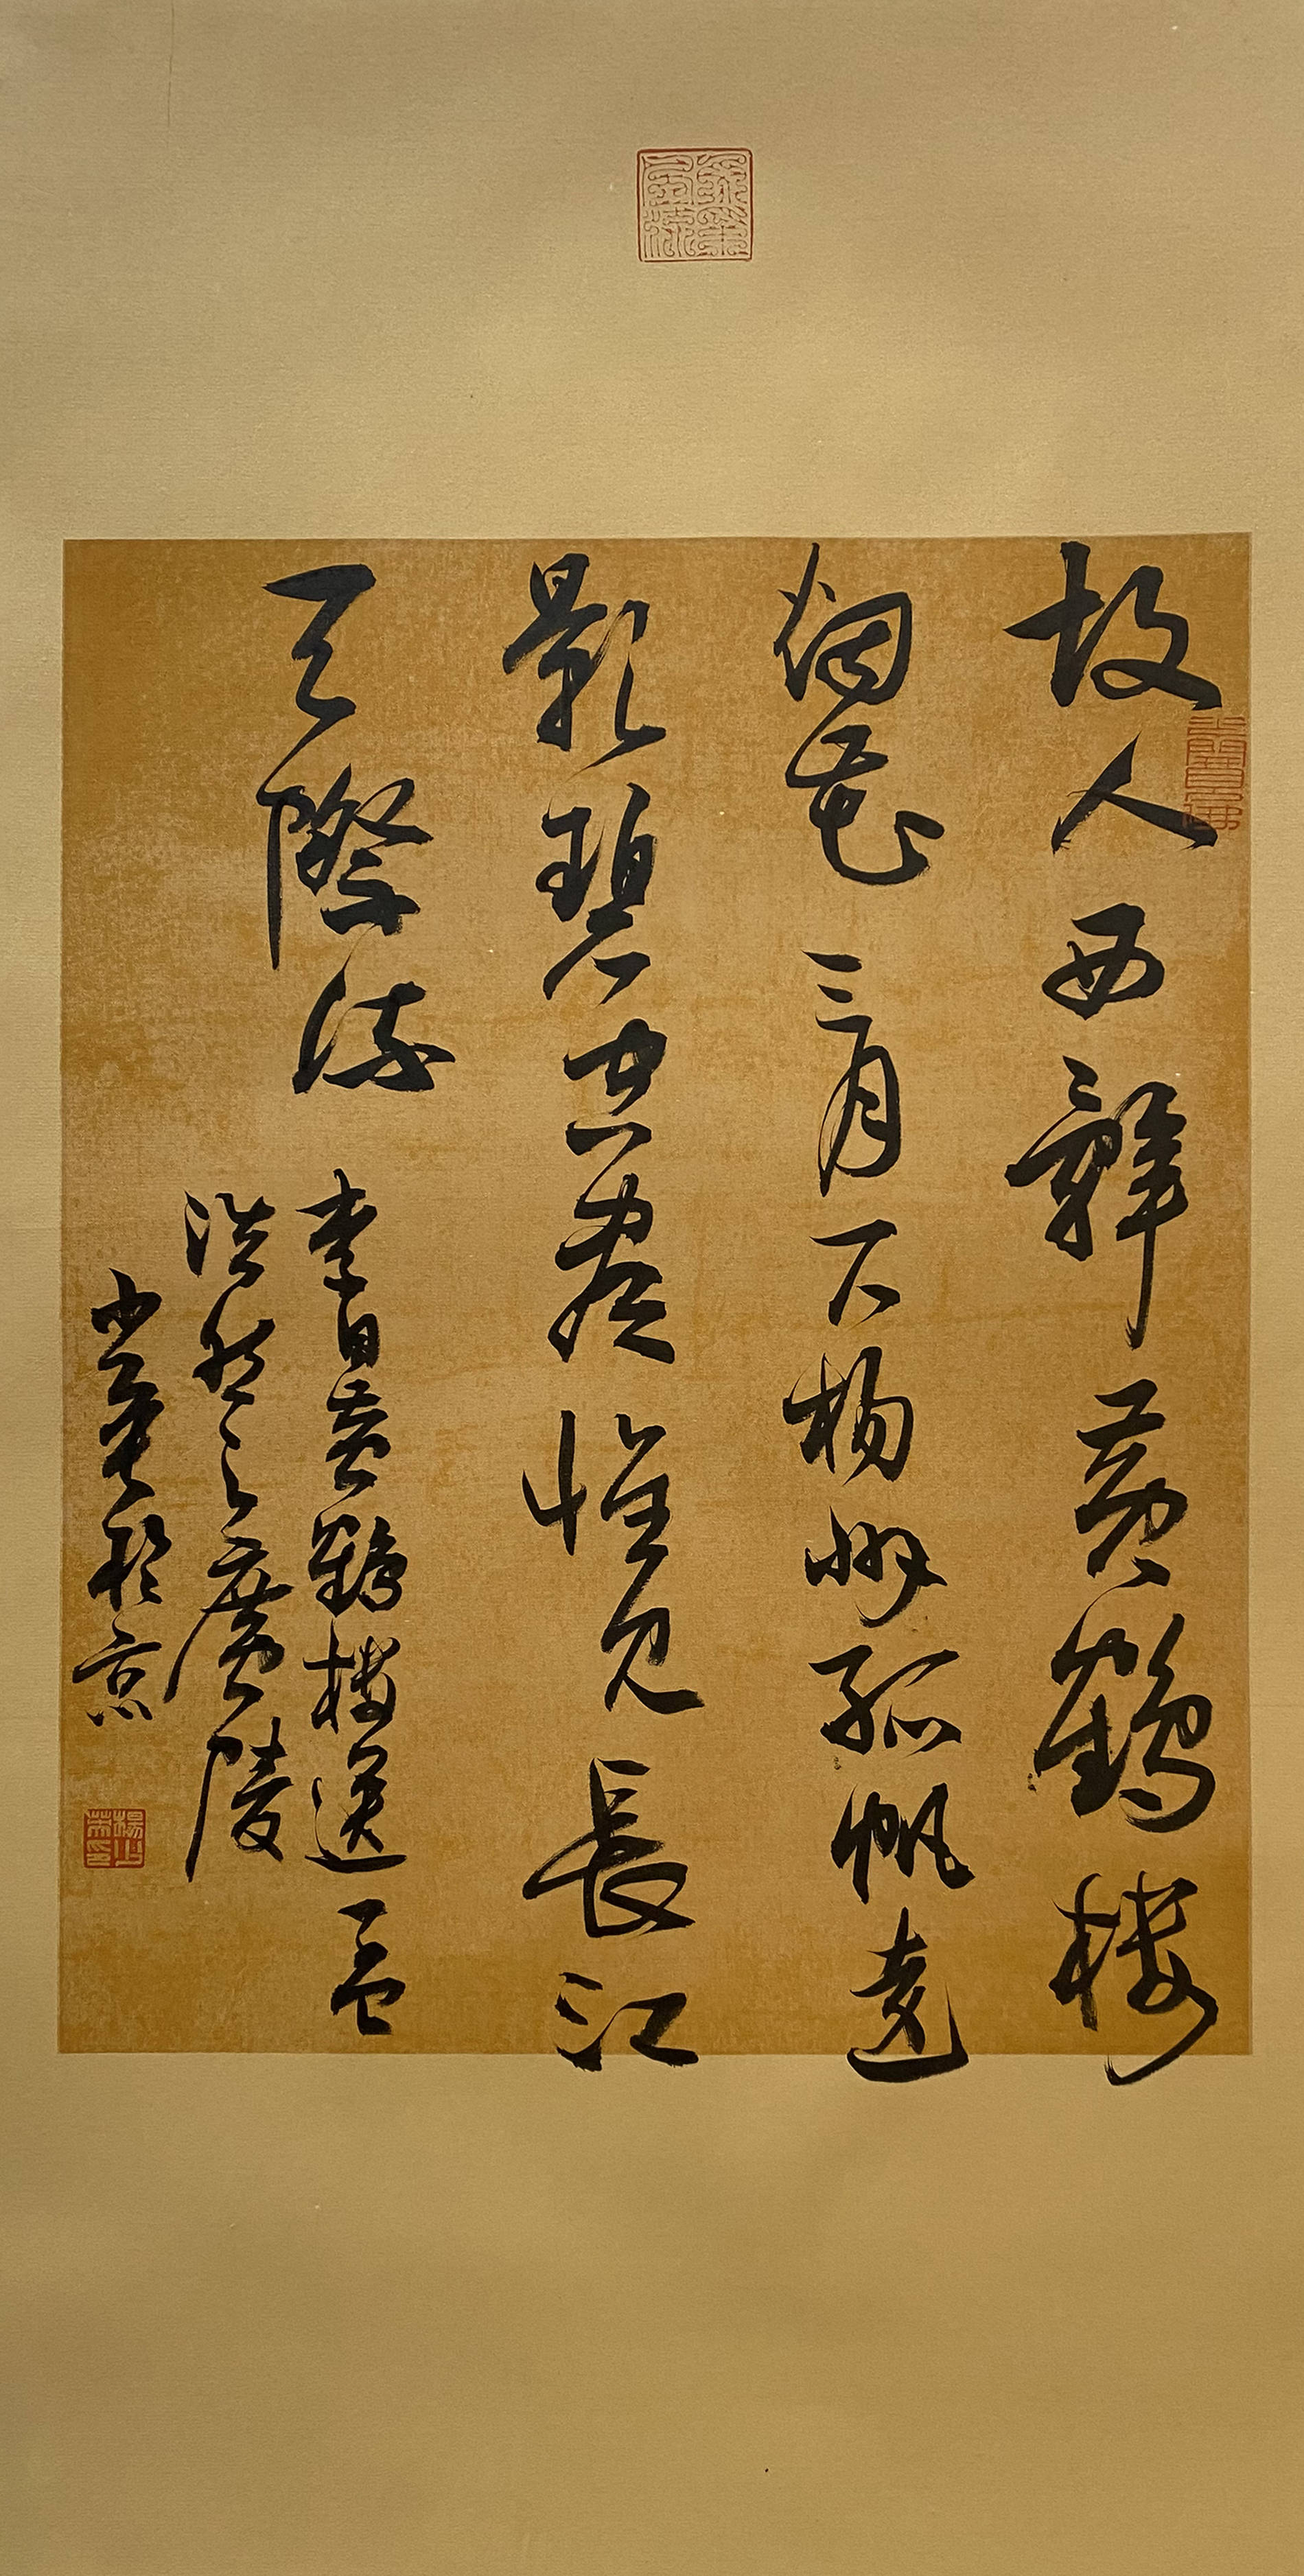 故人西辭黃鶴樓
烟花三月下揚州孤帆遠
影碧空盡惟見長江
天際流
李白黃鶴樓送孟
浩然之廣陵
少華於京